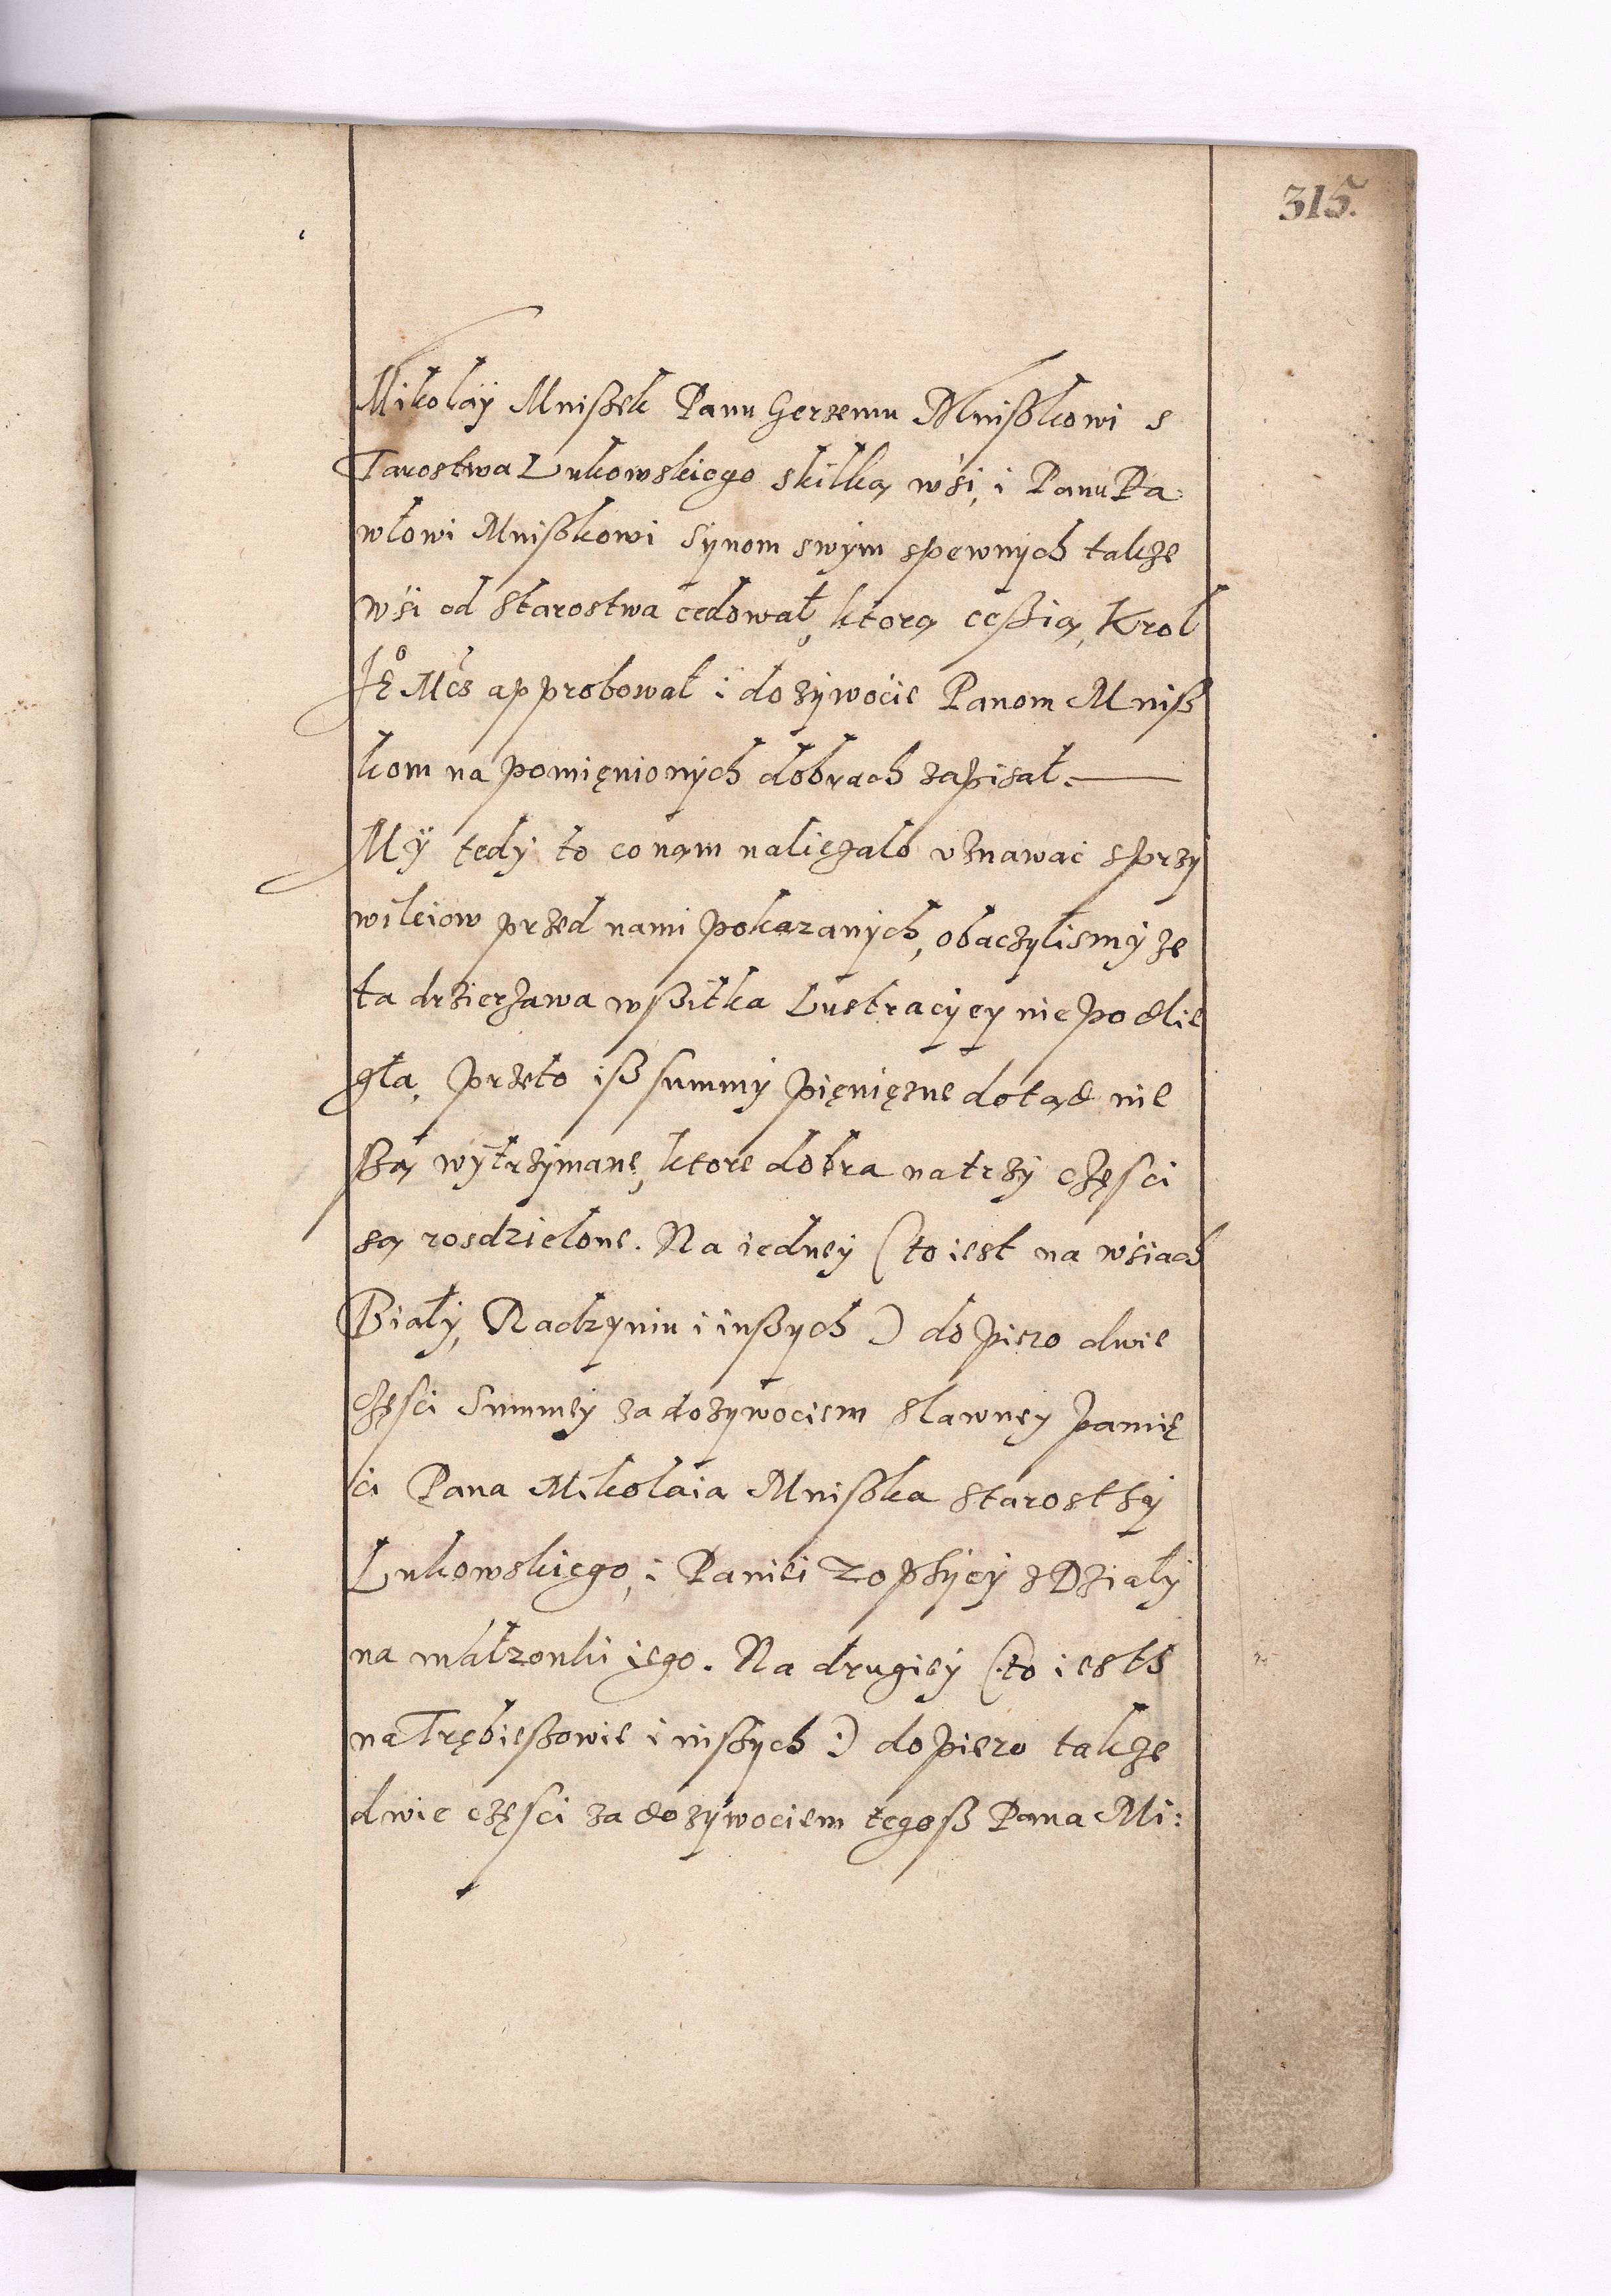 315.
Mikolaÿ Mnißek Panu Gerzemu Mnißkowi s
Tarostwa Lukowskiego skilką wśi, i Panu Pa
włowi Mnißkowi Synom swym spewnych takze
wśi od Starostwa cedował, ktorą ceßią, Krol
JE⁰ Mcz approbował i dozywocie Panom Mniß
kom na pomięnionych dobrach zapisał.—
Mÿ tedy to co nąm naliegało vznawac sprzy
wileiow przed nami pokazanych, obaczylismy ze
ta drzierzawa wßitka Lustracyey nie podlie
gła, przeto iß summy pięnięzne dotąd nie
ßą wytrzymane, ktore dobra natrzy częsci
są rosdzielone. Na iedney (to iest na wśiach
Biały, Radzyniu i inßych) dopiero dwie
częsci Summey za dozywociem sławney pamię
ci Pana Mikolaia Mnißka Starosthy
Lukowskiego, i Paniei Zophyey z Działy
na małzonki iego. Na drugiey (to iests
na Trębießowie i inßych :) dopiero takze
dwie częsci za dozywociem tegoß Pana Mi: